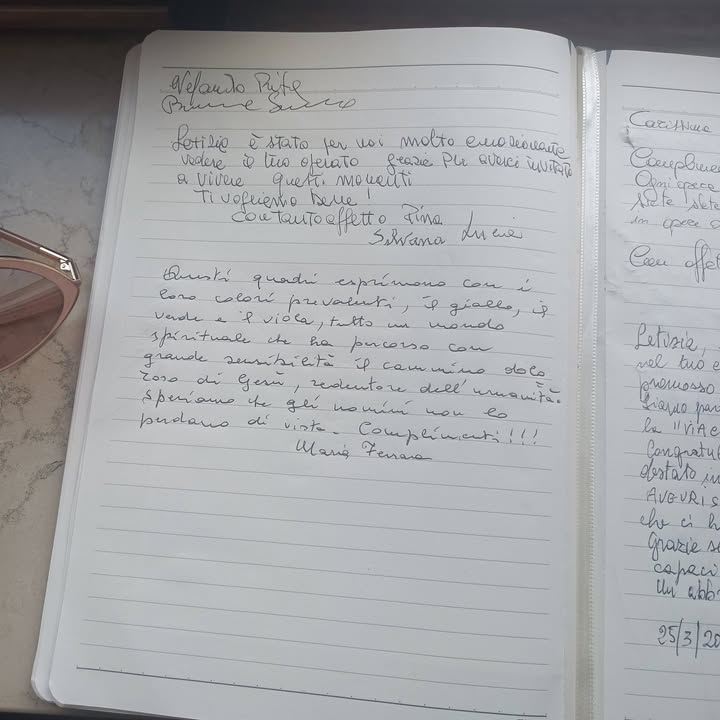 Letizia è stato per noi molto emozionante
vedere il tuo operato grazie per averci invitato
a vivere questi momenti
Ti vogliamo bene!
Con tanto affetto Pina
Silvana Lucia
Questi quadri esprimono con i
loro colori prevalenti, il giallo, il
verde e il viola, tutto un mondo
spirituale che ha percorso con
grande sensibilità il cammino dolo
roso di Gesù, redentore dell'umanità.
Speriamo che gli uomini non lo
perdano di vista. Complimenti!!!
Maria Ferrara
Carissima
Complimen
Ogni opera
siete
in opera
Con affet
Letizia,
nel tuo
promosso
la "VIA C
Congratul
destato in
AUGURI S
che ci h
Grazie
capaci
Un abbr
25/3/20